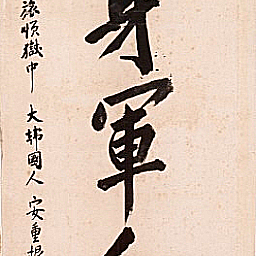 身軍人
旅順獄中 大韓國人 安重根